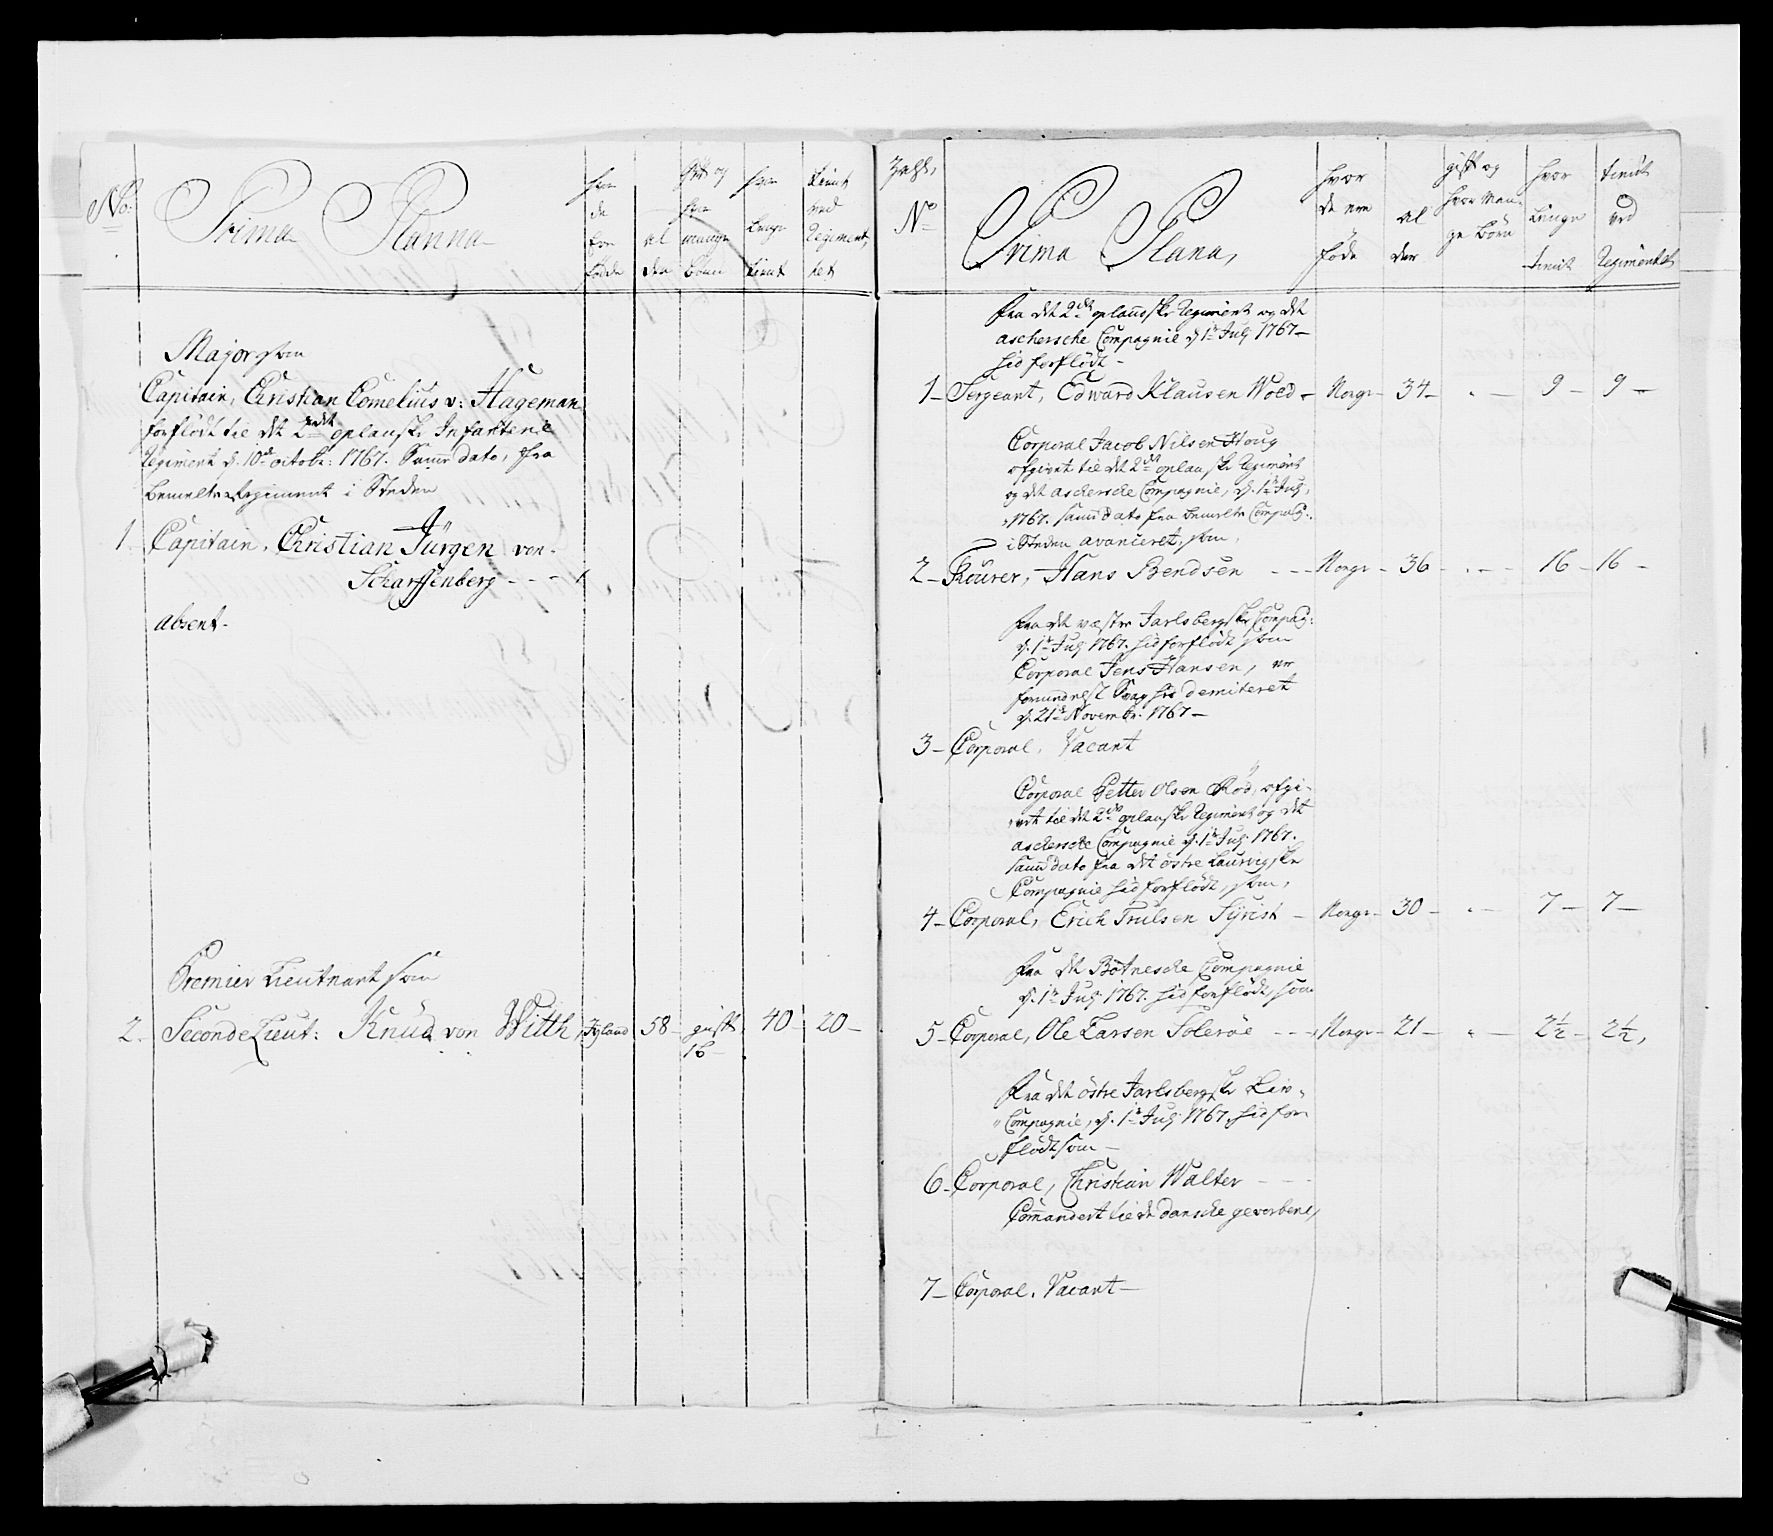 No:
Prima Planna
hvor
de
Ere
fødde
al
der
Gift og
hvor
mange
Børn
hvor
Længe
tient
tient
ved
Regimen,,
tet
Major som
Capitain, Christian Cornelius v: Hageman
forflødt til det 2det oplanske Infanterie
Regiment d. 10de octobr: 1767. Samme dato, fra
bemelte Regiment i Steden
1. Capitain. Christian Jürgen von
Scharffenberg - - -
absent.
Premier Lieutnant som
2. Seconde Lieut: Knud von Witth, Jyland 58 - gift 40 - 20 -
1 b -
No
Prima Plana,
hvor
de ere
føde
al
der
gift og
hvor Man,,
ge Børn
hvor
Længe
tient
tient
ved
Regimentet
Fra det 2det oplandske Regiment og det
aschersche Compagnie d 1te July 1767 -
hid forflødt -
1 - Sergeant, Edward Klausen Woed - Norge - 34 - " - 9 - 9 -
Corporal Jacob Nilsen Houg
afgivet til det 2det oplanske Regiment
og det aschersche Compagnie, d. 1te July,
1767. samme dato fra bemelte Compag:
i Steden avanceret, som,
2 - Fourer, Hans Bendsen - - - Norge - 36 - " - 16 - 16 -
Fra det væstre Jarlsbergske Compag:
d. 1te July 1767. hid forflødt som
Corporal Jens Hansen, er
formedelst Svaghed demiteret
d. 21de Novembr. 1767 -
3 - Corporal, Vacant
Corporal Petter Olsen Röd, afgi-
vet til det 2det oplanske Regiment og det
aschersche Compagnie d. 1te July 1767.
samme dato fra det østre Laurvigske
Compagnie hid forflødt, som,
4 - Corporal, Erich Trulsen Syrist - Norge - 30 - " - 7 - 7 -
Fra det Botnesche Compagnie
d. 1te July 1767. hid forflødt, som
5 - Corporal, Ole Larsen Soleröe - - - Norge - 21 - " - 2½ - 2½,
Fra det østre Jarlsbergske Liv,,
" Compagnie, d. 1te July 1767, hid for
flødt som -
6 - Corporal, Christian Walter - - -
Commandert til de danske geworbene,
7 - Corporal. Vacant -